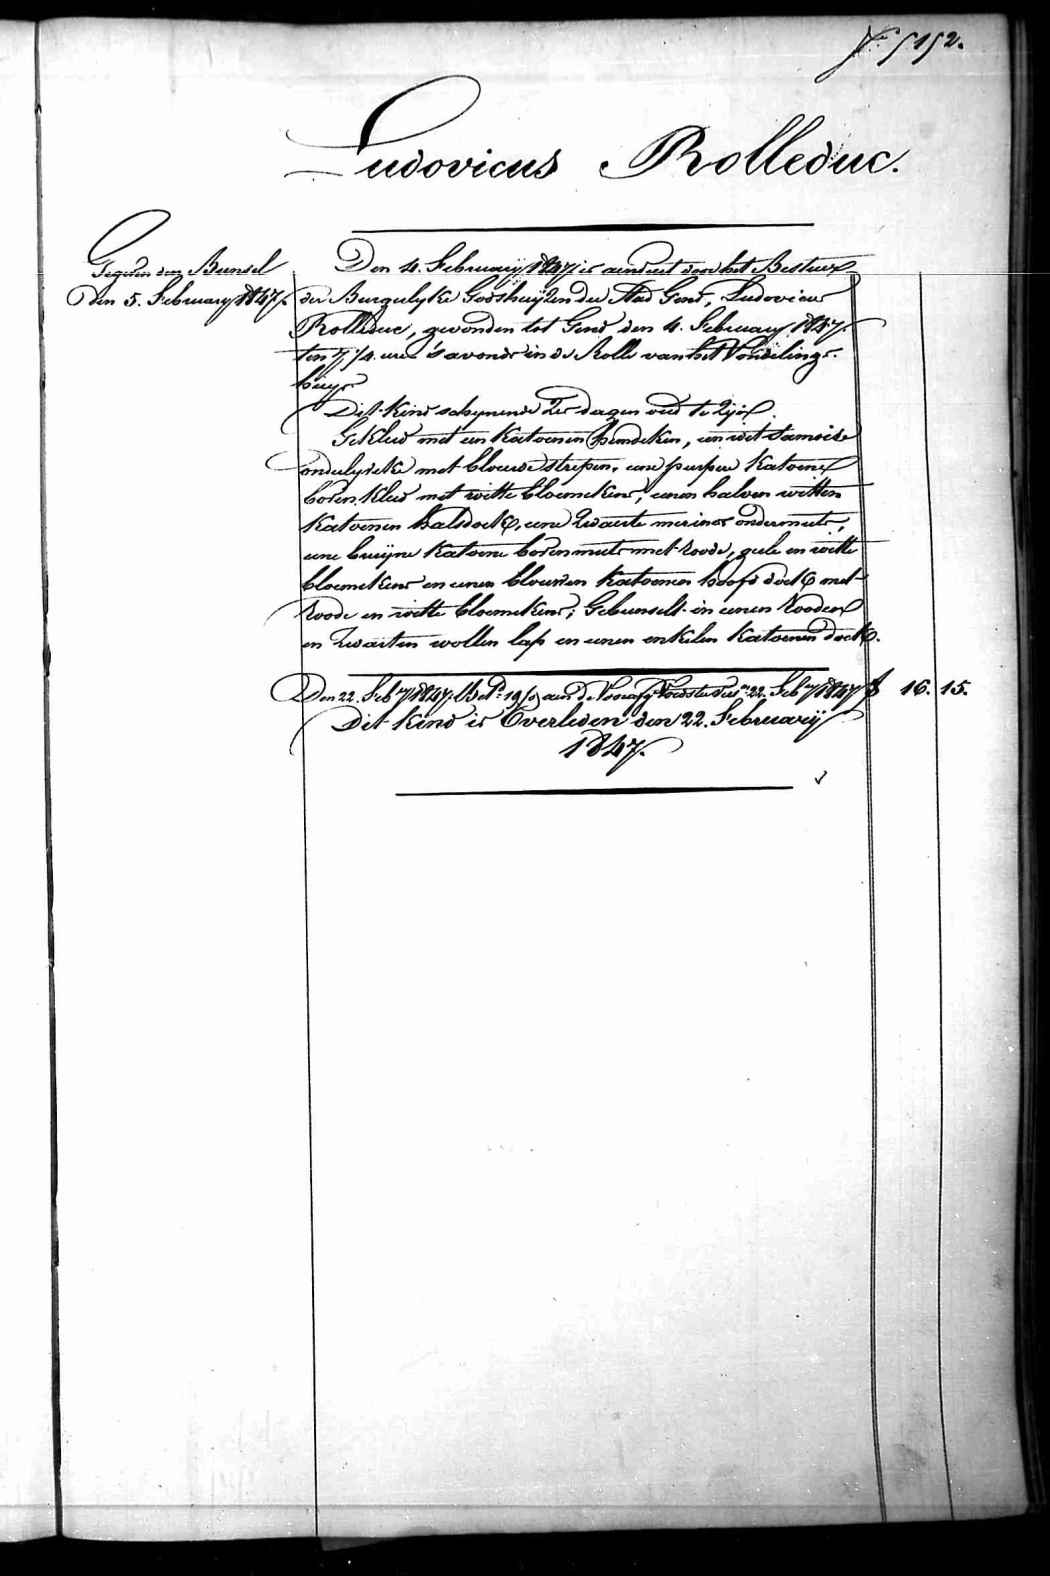 F° 5152.
Ludovicus Rolleduc.
Gegeven den Bunsel
den 5. February 1847.
Den 4. February 1847 is aenveert door het Bestuer
der Burgerlyke Godshuyzen der Stad Gend, Ludovicus
Rolleduc, gevonden tot Gend den 4. February 1847.
ten 7 1/4 uren 's avonds in de Rolle van het Vondelings-
huys
Dit Kind schynende Zes dagen oud te Zyn.
Gekleed met een Katoenen hemdeken, een wit
onderlyveke met blauwe strepen, eene purper Katoene
boven Kleed met witte bloemekens, eenen halven witten
Katoenen halsdoek, eene Zwarte merinos ondermuts,
eene bruyne Katoene bovenmuts met roode, geele en witte
bloemekens en eenen blauwen Katoenen hoofd doek met
roode en witte bloemekens; Gebunselt in eenen Rooden
en Zwarten wollen lap en eenen enkelen Katoenen doek.
Den 22. Feb.ry 1847 aen d. 22. Feb.ry 1847 f 16. 15.
Dit Kind is Overleden den 22. February
1847.